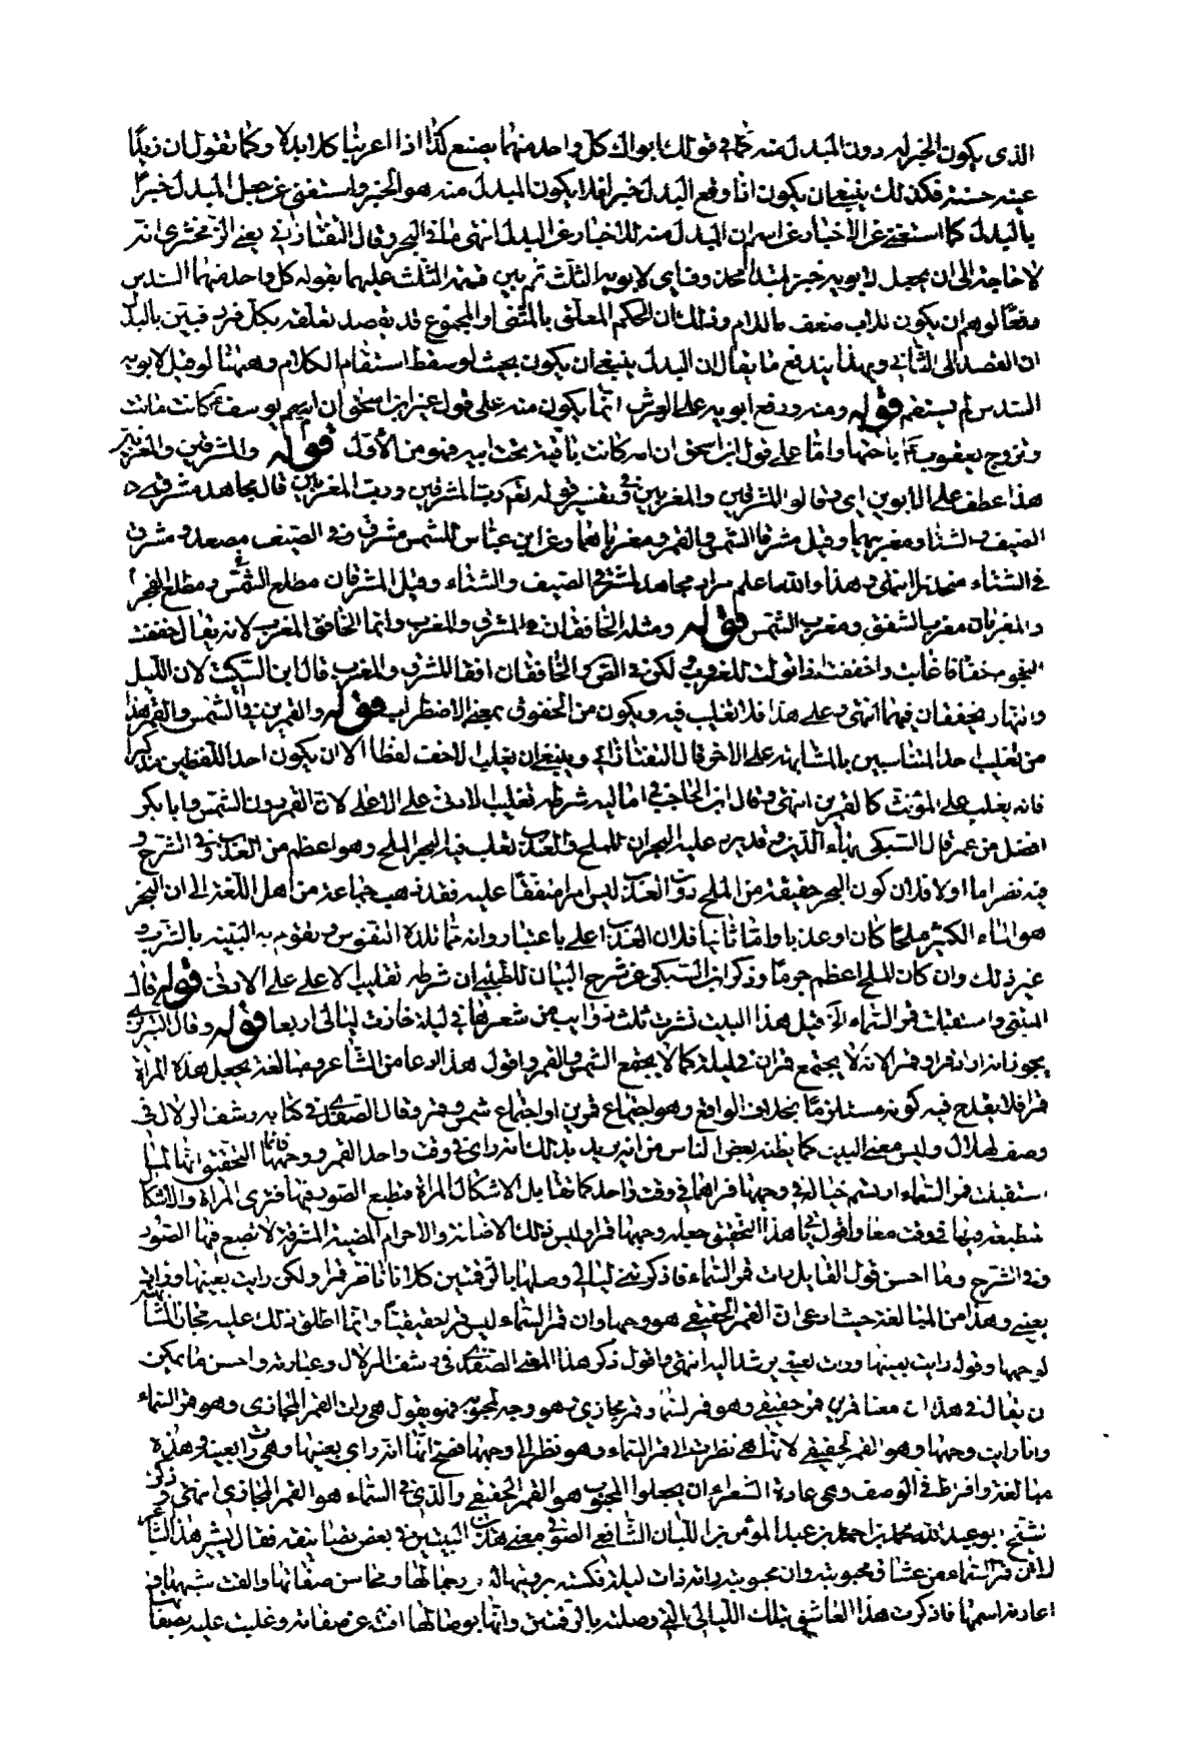 الذى يكون الخبر له دون المبدل منه كما فى قولك ابواك كل واحد منهما يصنع كذا اذا اعربنا كلا بدلا وكما تقول ان زيدا
عينه حسنة فكذلك ينبغى ان يكون اذا وقع البدل خبرا فلا يكون المبدل منه هو الخبر واستغنى عن جعل المبدل خبرا
بالبدل كما استغنى عن الاخبار عن اسم ان المبدل منه بالاخبار عن البدل انتهى ما فى البحر وقال التفتازانى يعنى الزمخشرى انه
لا حاجة الى ان يجعل لابويه خبر مبتدا محذوف اى لابويه الثلث ثم بين قسمة الثلث عليهما بقوله كل واحد منهما السدس
ان القصد الى الثانى وبهذا يندفع ما يقال ان البدل ينبغى ان يكون بحيث لو سقط استقام الكلام وههنا لو قيل لابويه
السدس لم يستقم قوله ومنه ورفع ابويه على العرش انما يكون منه على قول غير ابن اسحق ان ام يوسف كانت ماتت
وتزوج يعقوب باختها واما على قول ابن اسحق ان امه كانت باقية تحت ابيه فهو من الاول قوله والمشرقين والمغربين
هذا عطف على الابوين اى وقالوا المشرقين والمغربين وفى تفسير قوله تعالى رب المشرقين ورب المغربين قال مجاهد مشرقى
الصيف والشتاء ومغربيهما وقيل مشرقا الشمس والقمر ومغرباهما وعن ابن عباس للشمس مشرق فى الصيف مصعد ومشرق
فى الشتاء منحدر انتهى وهذا والله اعلم مراد مجاهد بمشرقى الصيف والشتاء وقيل المشرقان مطلع الشمس ومطلع الفجر
والمغربان مغرب الشفق ومغرب الشمس قوله ومثله الخافقان فى المشرق والمغرب وانما الخافق المغرب لانه يقال خفقت
النجوم خفقانا غابت واخفقت اذا تولت للغروب لكن فى الخافقان افقا المشرق والمغرب قال ابن السكيت لان الليل
والنهار يخفقان فيهما انتهى وعلى هذا فلا تغليب فيه ويكون من الخفوق بمعنى الاضطراب قوله والقمرين فى الشمس والقمر هذا
من تغليب احد المتناسبين بالمشابهة على الاخر قال التفتازانى وينبغى ان يغلب الاخف لفظا الا ان يكون احد اللفظين مذكرا
فانه يغلب على المؤنث كالقمرين انتهى وقال ابن الحاجب فى اماليه شرطه تغليب الادنى على الاعلى لان القمر دون الشمس وابا بكر
افضل من عمر قال السبكى بهاء الدين وقد يرد عليه البحران للملح والعذب تغلب فيه البحر الملح وهو اعظم من العذب وفى الشرح
فيه نظر اما اولا فلان كون البحر حقيقة من الملح دون العذب ليس امرا متفقا عليه فقد ذهب جماعة من اهل اللغة الى ان البحر
هو الماء الكثير ملحا كان او عذبا واما ثانيا فلان العذب اعلى باعتبار وانه مما تلذه النفوس وتقوم به البنية بالشرب و
غير ذلك وان كان الملح اعظم جرما وذكر ابن السبكى عن شرح البيان للطيبى ان شرطه تغليب الاعلى على الادنى قوله قال
المتنبى واستقبلت قمر السماء الخ قبل هذا البيت نشرت ثلث ذوائب من شعرها فى ليلة فارت ليالى اربعا قوله وقال التبريزى
يجوز انه اراد قمرا وقمرا لانه لا يجتمع قمران فى ليلة كما لا يجتمع الشمس والقمر واقول هذا ادعا من الشاعر ومبالغة بجعل هذه المراة
قمرا فلا يقدح فيه كونه مستلزما بخلاف الواقع وهو اجتماع قمرين او اجتماع شمس وقمر وقال الصفدى فى كتابه رشف الزلال فى
وصف الهلال وليس معنى البيت كما يظنه بعض الناس من انه يريد بذلك انه راى فى وقت واحد القمر ووجهها قائما التحقيق انها لما
استقبلت قمر السماء ارتسم خياله فى وجهها فراهما فى وقت واحد كما تقابل الاشكال المراة فتطبع الصور فيها فترى المراة والاشكا
منطبعة فيها فى وقت معا واقول يابى هذا التحقيق جعله وجهها قمرا وليس ذلك الاضائته والاجرام المضيئة المشرقة لا تطبع فيها الصور
وفى الشرح وما احسن قول القائل رات قمر السماء فاذكرتنى ليالى وصلها بالرقمتين كلانا ناظر قمرا ولكن رايت بعينها ورات
بعينى وهذا من المبالغة حيث ادعى ان القمر الحقيقى هو وجهها وان قمر السماء ليس قمرا حقيقيا وانما اطلق ذلك عليه مجازا
لوجهها وقوله رايت بعينها ورات بعينى يرشد اليه انتهى واقول ذكر هذا المعنى الصفدى فى رشف الزلال وعبارته واحسن ما يمكن
ان يقال فى هذا ان معنا قمرين قمر حقيقى وهو قمر السماء وقمر مجازى وهو وجه محبوبة فهو يقول هى رات القمر المجازى وهو قمر السماء
وانا رايت وجهها وهو القمر الحقيقى لانها هى نظرت الى قمر السماء وهو نظر الى وجهها فصح انها انه راى بعينها وهى رات بعينه وهذه
مبالغة وافراط فى الوصف وهى عادة الشعراء ان يجعلوا المحبوب هو القمر الحقيقى والذى فى السماء هو القمر المجازى انتهى وذكر
الشيخ ابو عبد الله محمد بن احمد بن عبد المؤمن بن اللبان الشافعى الصوفى معنى هذين البيتين فى بعض تصانيفه فقال يشير هذا
اعادته اسمها فاذكرت هذا العاشق بتلك الليالى التى وصلته بالرقمتين وانها بوصالها افنته عن صفاته وغلبت عليه بصفا